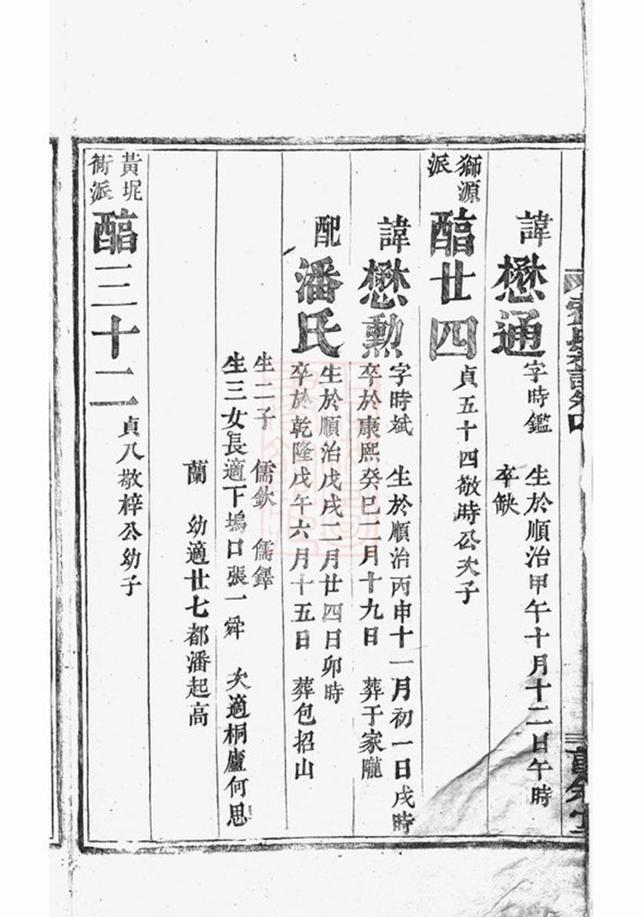 諱懋通 字時鑑 生於順治甲午十月十二日午時
卒缺
獅源派 酷廿四 貞五十四敬時公次子
諱懋勲 字時斌 生於順治丙申十一月初一日戌時
卒於康熙癸巳二月十九日 葬于家隴
配潘氏 生於順治戊戌二月廿四日卯時
卒於乾隆戊午六月十五日 葬包招山
生二子 儒欽 儒鐸
生三女長適下塢口張一舜 次適桐廬何思
蘭 幼適廿七都潘起高
黃坭衕派 酷三十二 貞八敬梓公幼子